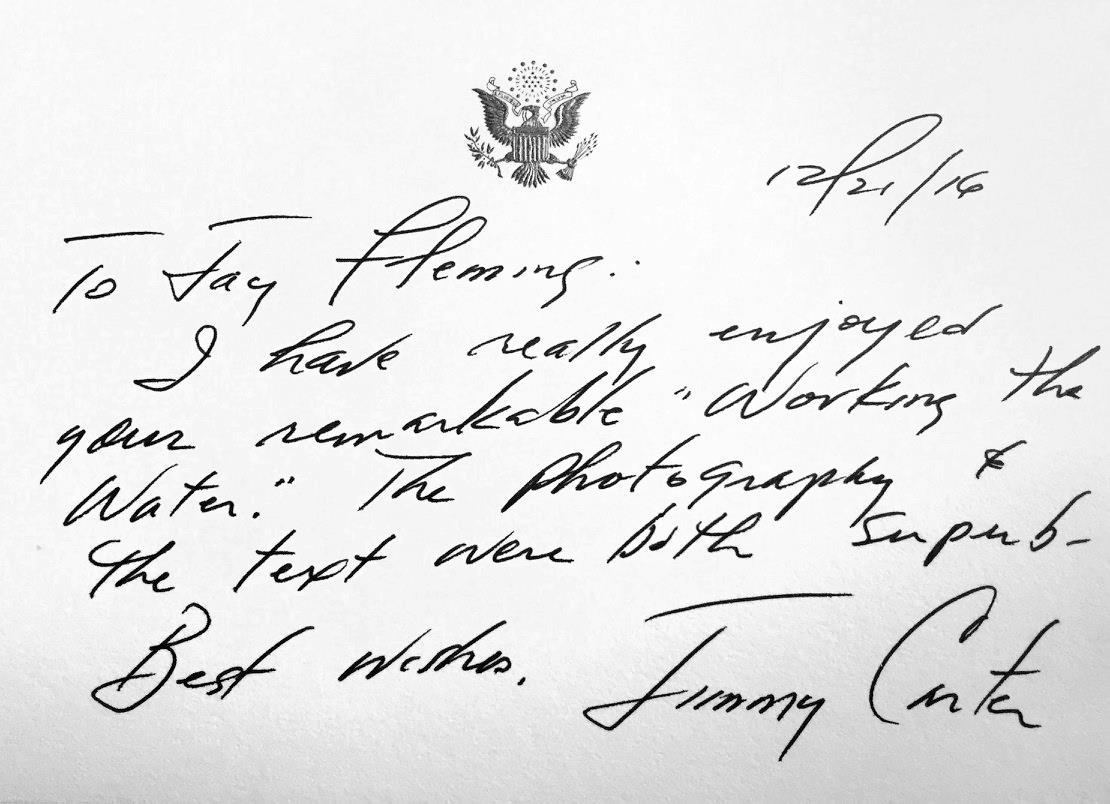 12/21/16
To Jay Fleming:
I have really enjoyed
your remarkable "Working the
Water." The photography &
the text were both superb-
Best wishes,
Jimmy Carter